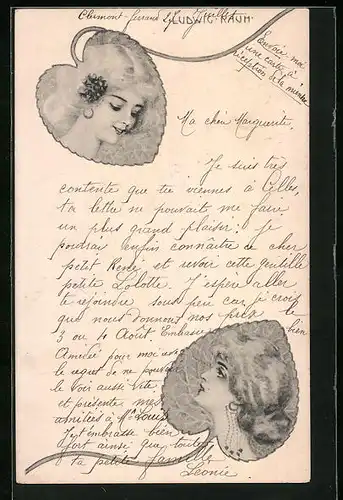 Clermont-Ferrand 27 Juillet
LUDWIG RAUH
Envoie-moi
une carte à
réception de la mienne
Ma chère Marguerite,
Je suis très
contente que tu viennes à Celles,
ta lettre ne pouvait me faire
un plus grand plaisir. Je
pourrais enfin connaître ce cher
petit René et revoir cette gentille
petite Lolotte. J'espère aller
te rejoindre sous peu car je crois
que nous donnons nos prix le
3 ou 4 Août. Embrasse bien
Amédée pour moi
le regret de ne pouvoir
le voir aussi vite
et présente mes
amitiés à Mr Louis
Je t'embrasse bien
fort ainsi que toute
ta petite famille
Léonie.